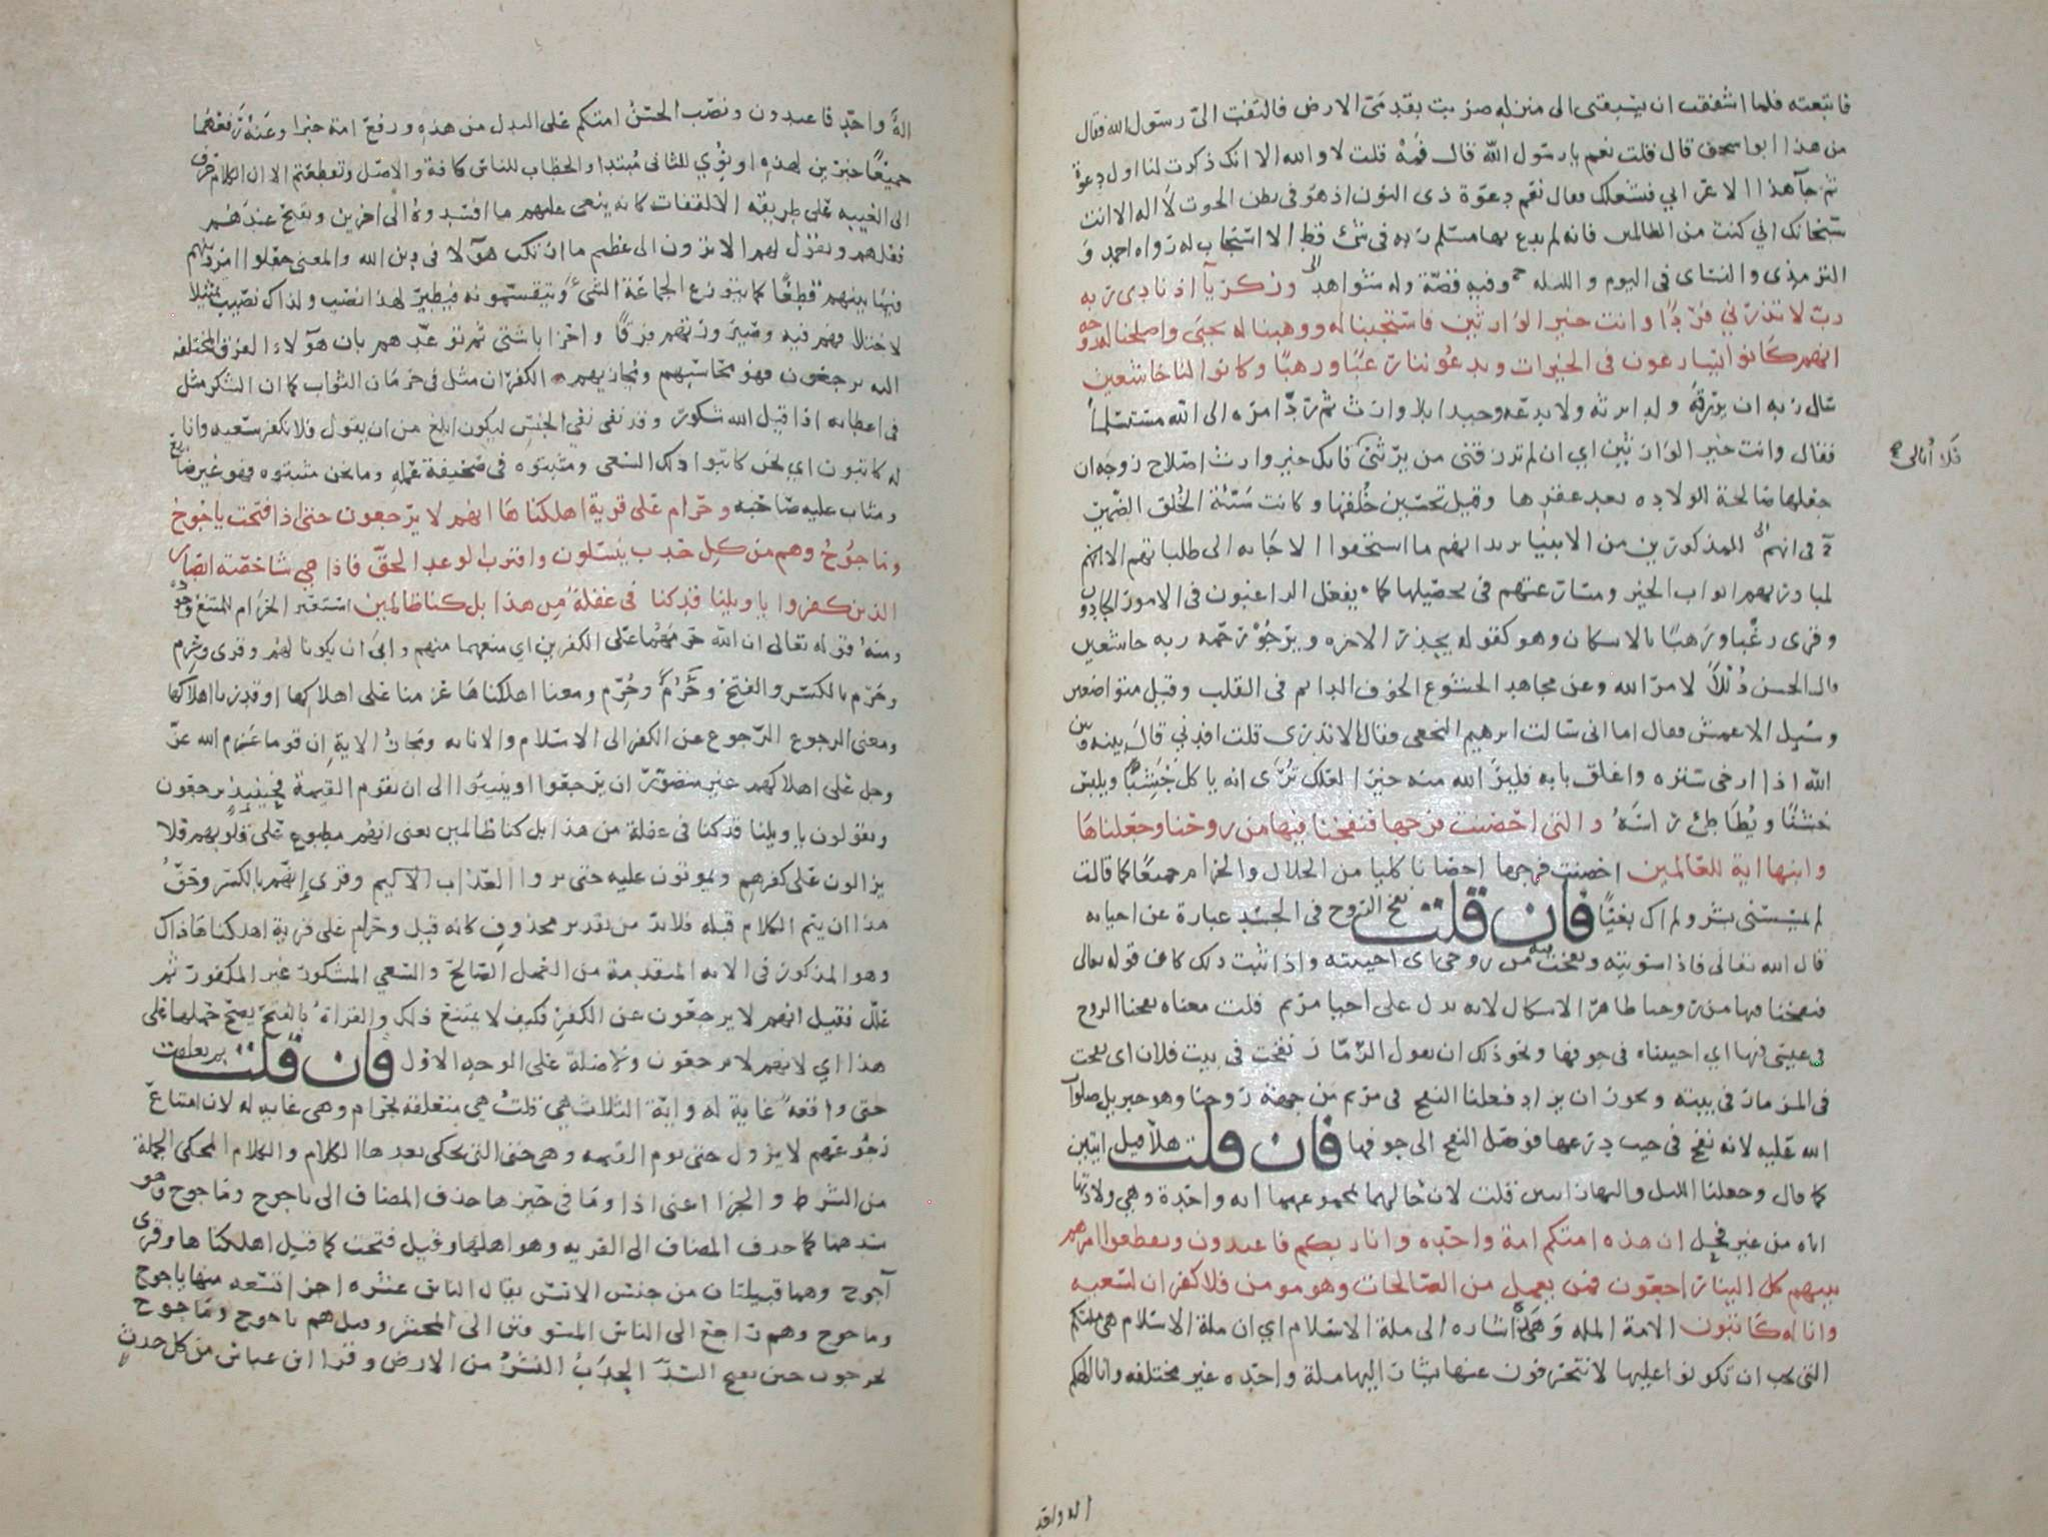 فاتبعته فلما اشفقت ان يسبقني الى منزله ضربت بقدمي الارض فالتفت الي رسول الله فقال
من هذا ابو اسحق قال قلت نعم يا رسول الله قال فمه قلت لا والله الا انك ذكرت لنا اول دعوة
ثم جآ هذا الاعرابي فشغلك فقال نعم دعوة ذي النون اذ هو في بطن الحوت لا اله الا انت
سبحانك اني كنت من الظالمين فانه لم يدع بها مسلم ربه في شئ قط الا استجاب له رواه احمد و
الترمذي والنساي في اليوم والليله وفيه قصة وله شواهد وزكريآ اذ نادى ربه
رب لا تذرني فردا وانت خير الوارثين فاستجبنا له ووهبنا له يحيى واصلحنا له زوجه
انهم كانوا يسارعون في الخيرات ويدعوننا رغبا ورهبا وكانوا لنا خاشعين
سال ربه ان يرزقه ولدا يرثه ولا يدعه وحيدا بلا وارث ثم رد امره الى الله مستسلما
فقال وانت خير الوارثين اي ان لم ترزقني من يرثني فانك خير وارث اصلاح زوجه ان
فلا ابالي
جعلها صالحة الولاده بعد عقرها وقيل تحسين خلقها وكانت سيئة الخلق الضمير
في انهم للمذكورين من الانبيا يريد انهم ما استحقوا الاجابه الى طلباتهم الا انهم
لمبادرتهم ابواب الخير ومسارعتهم في تحصيلها كما يفعل الراغبون في الامور الجادون
وقرى رغبا ورهبا بالاسكان وهو كقوله يحذر الاخره ويرجو رحمه ربه خاشعين
قال الحسن ذللا لامر الله وعن مجاهد الخشوع الخوف الدايم في القلب وقيل متواضعين
وسيل الاعمش فقال اما اني سالت ابرهيم النخعي فقال الا تدري قلت افدني قال بينه وبين
الله اذا ارخى ستره واغلق بابه فلير الله منه خيرا لعلك ترى انه ياكل جشبا ويلبس
خشنا ويطاطئ راسه والتي احصنت فرجها فنفخنا فيها من روحنا وجعلناها
وابنها اية للعالمين احصنت فرجها احصانا كليا من الحلال والحرام جميعا كما قالت
لم يمسسني بشر ولم اك بغيا فان قلت نفخ الروح في الجسد عبارة عن احيايه
قال الله تعالى فاذا سويته ونفخت فيه من روحي اي احييته واذا ثبت ذلك كان قوله تعالى
فنفخنا فيها من روحنا ظاهر الاشكال لانه يدل على احيا مريم قلت معناه نفخنا الروح
في عيسى فيها اي احييناه في جوفها ونحو ذلك ان يقول الزمار نفخت في بيت فلان اي نفخت
في المزمار في بيته ويجوز ان يراد فعلنا النفخ في مريم من جهة روحنا وهو جبريل صلوات
الله عليه لانه نفخ في جيب درعها فوصل النفخ الى جوفها فان قلت هلا قيل ايتين
كما قال وجعلنا الليل والنهار ايتين قلت لان حالهما بمجموعهما ايه واحدة وهي ولادتها
اياه من غير فحل ان هذه امتكم امة واحده وانا ربكم فاعبدون وتقطعوا امرهم
بينهم كل الينا راجعون فمن يعمل من الصالحات وهو مومن فلا كفران لسعيه
وانا له كاتبون الامة المله وهذه اشاره الى ملة الاسلام اي ان ملة الاسلام هي ملتكم
التي يجب ان تكونوا عليها لا تنحرفون عنها يشار اليها ملة واحده غير مختلفه وانا الهكم
اله واحد
اله واحد فاعبدون ونصب الحسن امتكم على البدل من هذه ورفع امة خبرا وعنه رفعهما
جميعا خبرين لهذه او نوي للثاني مبتدا والخطاب للناس كافة والاصل وتقطعتم الا ان الكلام حرف
الى الغيبه على طريقه الالتفات كانه ينعى عليهم ما افسدوه الى اخرين ويقبح عندهم
فعلهم ويقول لهم الا ترون الى عظيم ما ارتكب هولا في دين الله والمعنى جعلوا امر دينهم
فيما بينهم قطعا كما يتوزع الجماعة الشئ ويتقسمونه فيطير لهذا نصيب ولذاك نصيب تمثيلا
لاختلافهم فيه وصيرورتهم فرقا واحزابا شتى ثم توعدهم بان هولاء الفرق المختلفه
اليه يرجعون فهو محاسبهم ومجازيهم الكفران مثل في حرمان الثواب كما ان الشكر مثل
في اعطايه اذا قيل الله شكور وقد نفى نفي الجنس ليكون ابلغ من ان يقول فلا نكفر سعيه وانا
له كاتبون اي نحن كاتبوا ذلك السعي ومثبتوه في صحيفة عمله وما نحن مثبتوه فهو غير ضايع
ومثاب عليه صاحبه وحرام على قرية اهلكناها انهم لا يرجعون حتى اذا فتحت ياجوج
وماجوج وهم من كل حدب ينسلون واقترب الوعد الحق فاذا هي شاخصة ابصار
الذين كفروا يا ويلنا قد كنا في غفلة من هذا بل كنا ظالمين استعير الحرام للممتنع وجوده
ومنه قوله تعالى ان الله حرمهما على الكفرين اي منعهما منهم وابى ان يكونا لهم وقرى وحرم
وحرم بالكسر والفتح وحرم وحرم ومعنا اهلكناها عزمنا على اهلاكها او قدرنا اهلاكها
ومعنى الرجوع الرجوع عن الكفر الى الاسلام والانابه ومجاز الاية ان قوما عزم الله عز
وجل على اهلاكهم غير متصور ان يرجعوا وينيبوا الى ان تقوم القيمة فحينيذ يرجعون
ويقولون يا ويلنا قد كنا في غفلة من هذا بل كنا ظالمين يعني انهم مطبوع على قلوبهم فلا
يزالون على كفرهم ويموتون عليه حتى يروا العذاب الاليم وقرى انهم بالكسر وحق
هذا ان يتم الكلام قبله فلا بد من تقدير محذوف كانه قيل وحرام على قرية اهلكناها ذاك
وهو المذكور في الايه المتقدمة من العمل الصالح والسعي المشكور غير المكفور ثم
علل فقيل انهم لا يرجعون عن الكفر فكيف لا يمتنع ذلك والقراة بالفتح يصح حملها على
هذا اي لانهم لا يرجعون ولا صلة على الوجه الاول فان قلت بم تعلقت
حتى واقعه غاية له واية الثلاث هي قلت هي متعلقه بحرام وهي غايه له لان امتناع
رجوعهم لا يزول حتى يوم القيمه وهي حتى التي يحكى بعدها الكلام والكلام المحكي الجملة
من الشرط والجزا اعني اذا وما في حيزها حذف المضاف الى ياجوج وماجوج وهو
سدهما كما حذف المضاف الى القريه وهو اهلها وقيل فتحت كما قيل اهلكناها وقرى
آجوج وهما قبيلتان من جنس الانس يقال الناس عشره اجزا تسعه منها ياجوج
وماجوج وهم راجع الى الناس المسوقين الى المحشر وقيل هم ياجوج وماجوج
يخرجون حين يفتح السد الحدب النشز من الارض وقرا ابن عباس من كل جدث